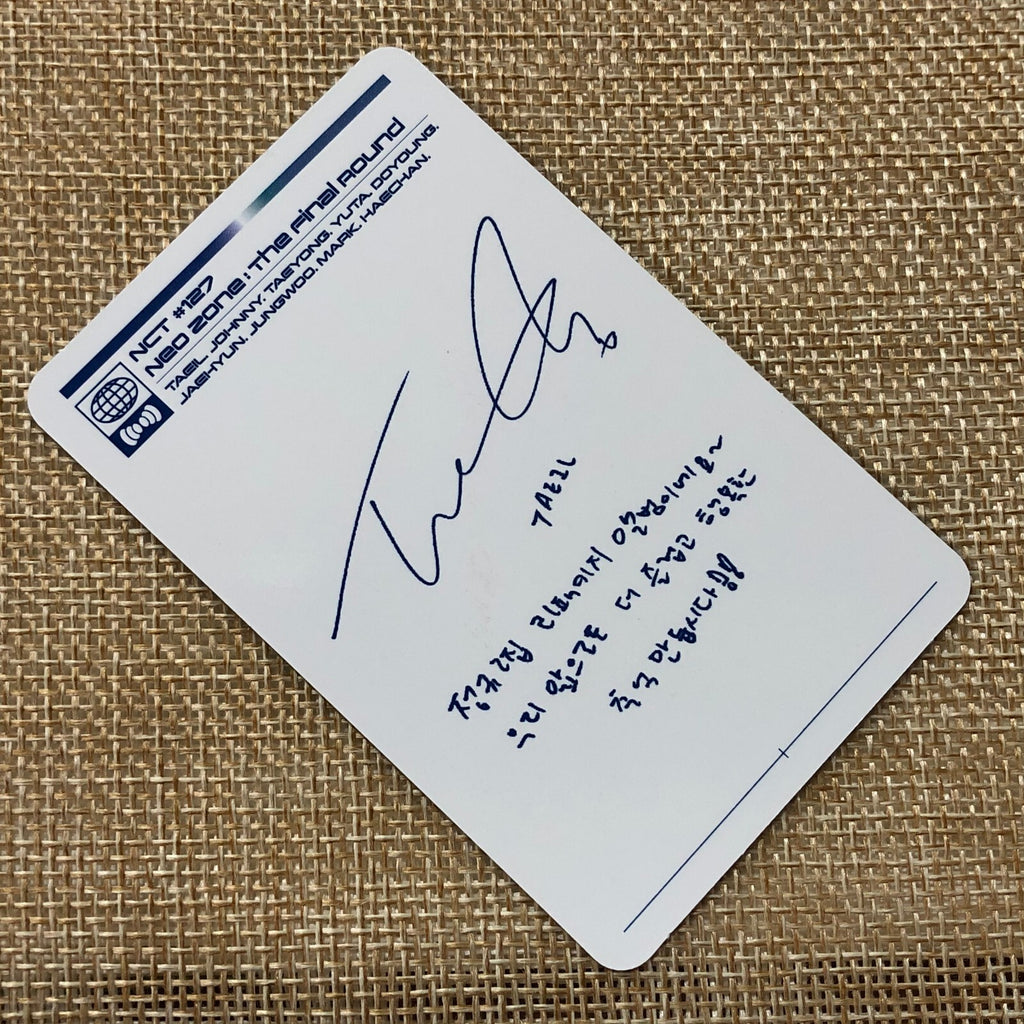 NCT #127
Neo Zone: The Final Round
TAEIL. JOHNNY. TAEYONG. YUTA. DOYOUNG.
JAEHYUN. JUNGWOO. MARK. HAECHAN.
TAEIL
정규2집 리패키지 앨범이네요~
우리 앞으로도 더 즐겁고 행복한
추억 만듭시다